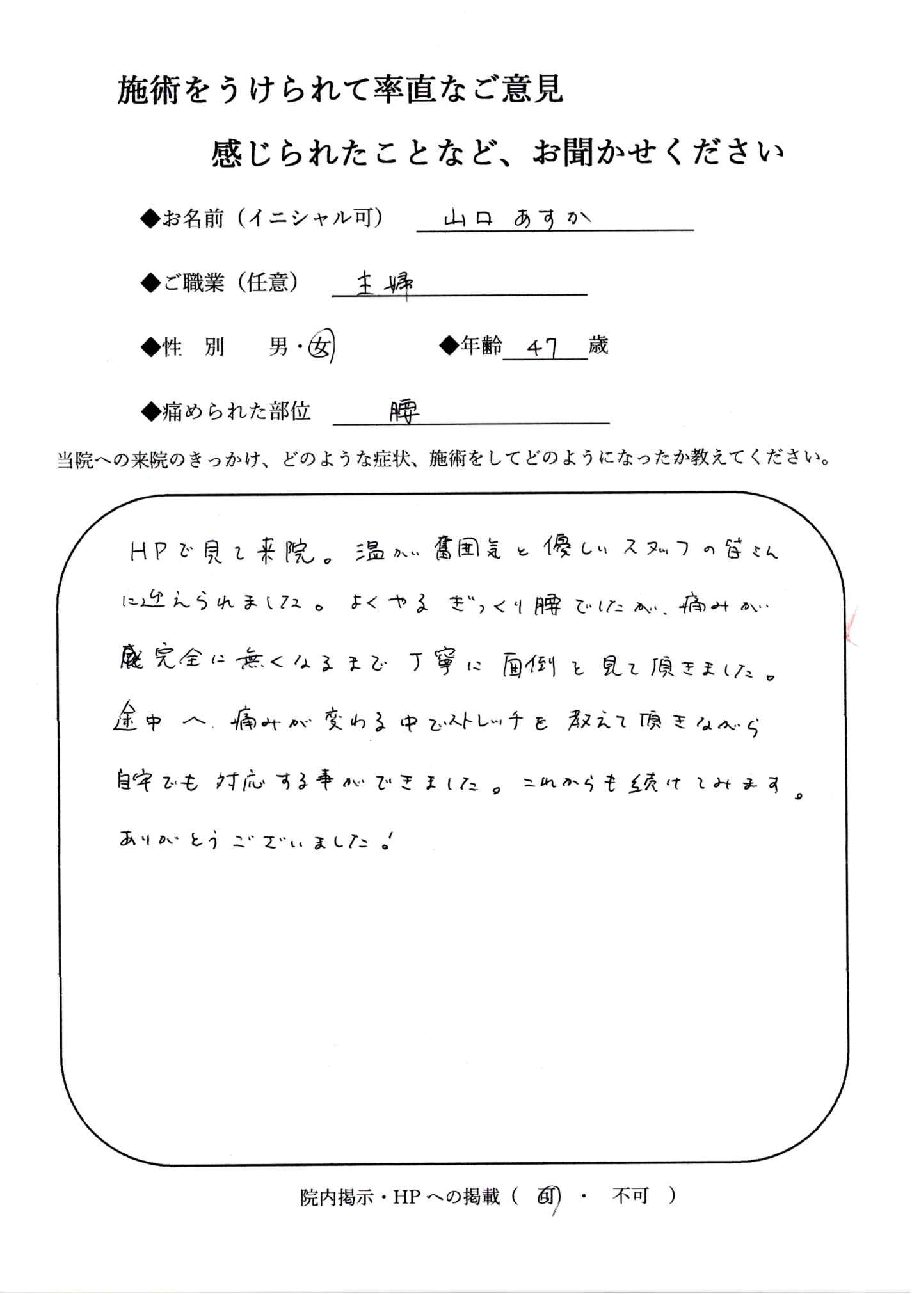 施術をうけられて率直なご意見
感じられたことなど、お聞かせください
◆お名前（イニシャル可） 山口 あすか
◆ご職業（任意） 主婦
◆性 別 男・女 ◆年齢 47 歳
◆痛められた部位 腰
当院への来院のきっかけ、どのような症状、施術をしてどのようになったか教えてください。
HPで見て来院。温かい雰囲気と優しいスタッフの皆さん
に迎えられました。よくやるぎっくり腰でしたが、痛みが
完全に無くなるまで丁寧に面倒を見て頂きました。
途中へ、痛みが変わる中でストレッチを教えて頂きながら
自宅でも対応する事ができました。これからも続けてみます。
ありがとうございました！
院内掲示・HPへの掲載（ 可 ・ 不可 ）